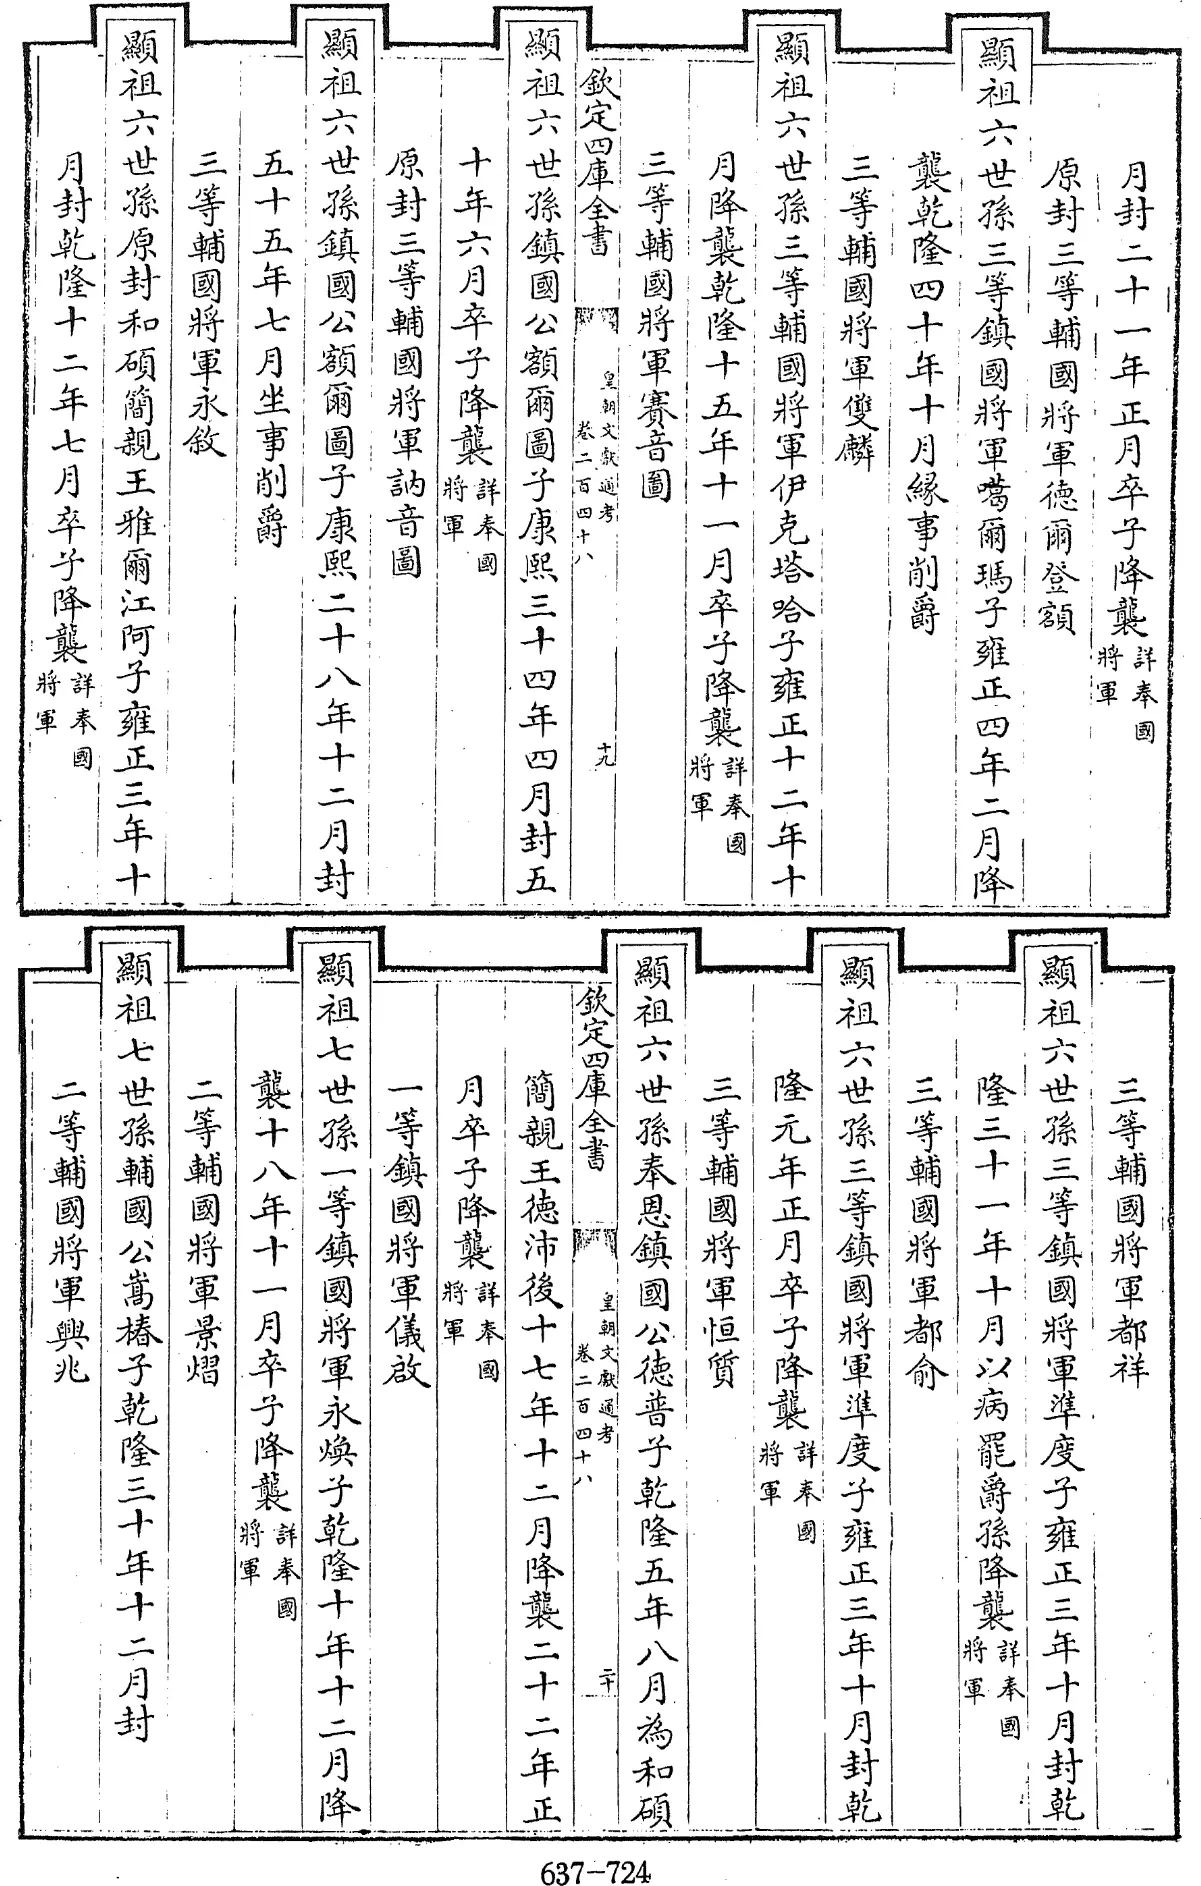 月封二十一年正月卒子降襲詳奉國將軍
原封三等輔國將軍徳爾登額
顯祖六世孫三等鎮國將軍噶爾瑪子雍正四年二月降
襲乾隆四十年十月緣事削爵
三等輔國將軍雙麟
顯祖六世孫三等輔國將軍伊克塔哈子雍正十二年十
月降襲乾隆十五年十一月卒子降襲詳奉國將軍
三等輔國將軍賽音圖
欽定四庫全書 皇朝文獻通考 卷二百四十八 十九
顯祖六世孫鎮國公額爾圖子康熙三十四年四月封五
十年六月卒子降襲詳奉國將軍
原封三等輔國將軍訥音圖
顯祖六世孫鎮國公額爾圖子康熙二十八年十二月封
五十五年七月坐事削爵
三等輔國將軍永敘
顯祖六世孫原封和碩簡親王雅爾江阿子雍正三年十
月封乾隆十二年七月卒子降襲詳奉國將軍
三等輔國將軍都祥
顯祖六世孫三等鎮國將軍準度子雍正三年十月封乾
隆三十一年十月以病罷爵孫降襲詳奉國將軍
三等輔國將軍都俞
顯祖六世孫三等鎮國將軍準度子雍正三年十月封乾
隆元年正月卒子降襲詳奉國將軍
三等輔國將軍恒質
顯祖六世孫奉恩鎮國公徳普子乾隆五年八月為和碩
欽定四庫全書 皇朝文獻通考 卷二百四十八 二十
簡親王徳沛後十七年十二月降襲二十二年正
月卒子降襲詳奉國將軍
一等鎮國將軍儀啟
顯祖七世孫一等鎮國將軍永煥子乾隆十年十二月降
襲十八年十一月卒子降襲詳奉國將軍
二等輔國將軍景熠
顯祖七世孫輔國公嵩椿子乾隆三十年十二月封
二等輔國將軍興兆
637-724